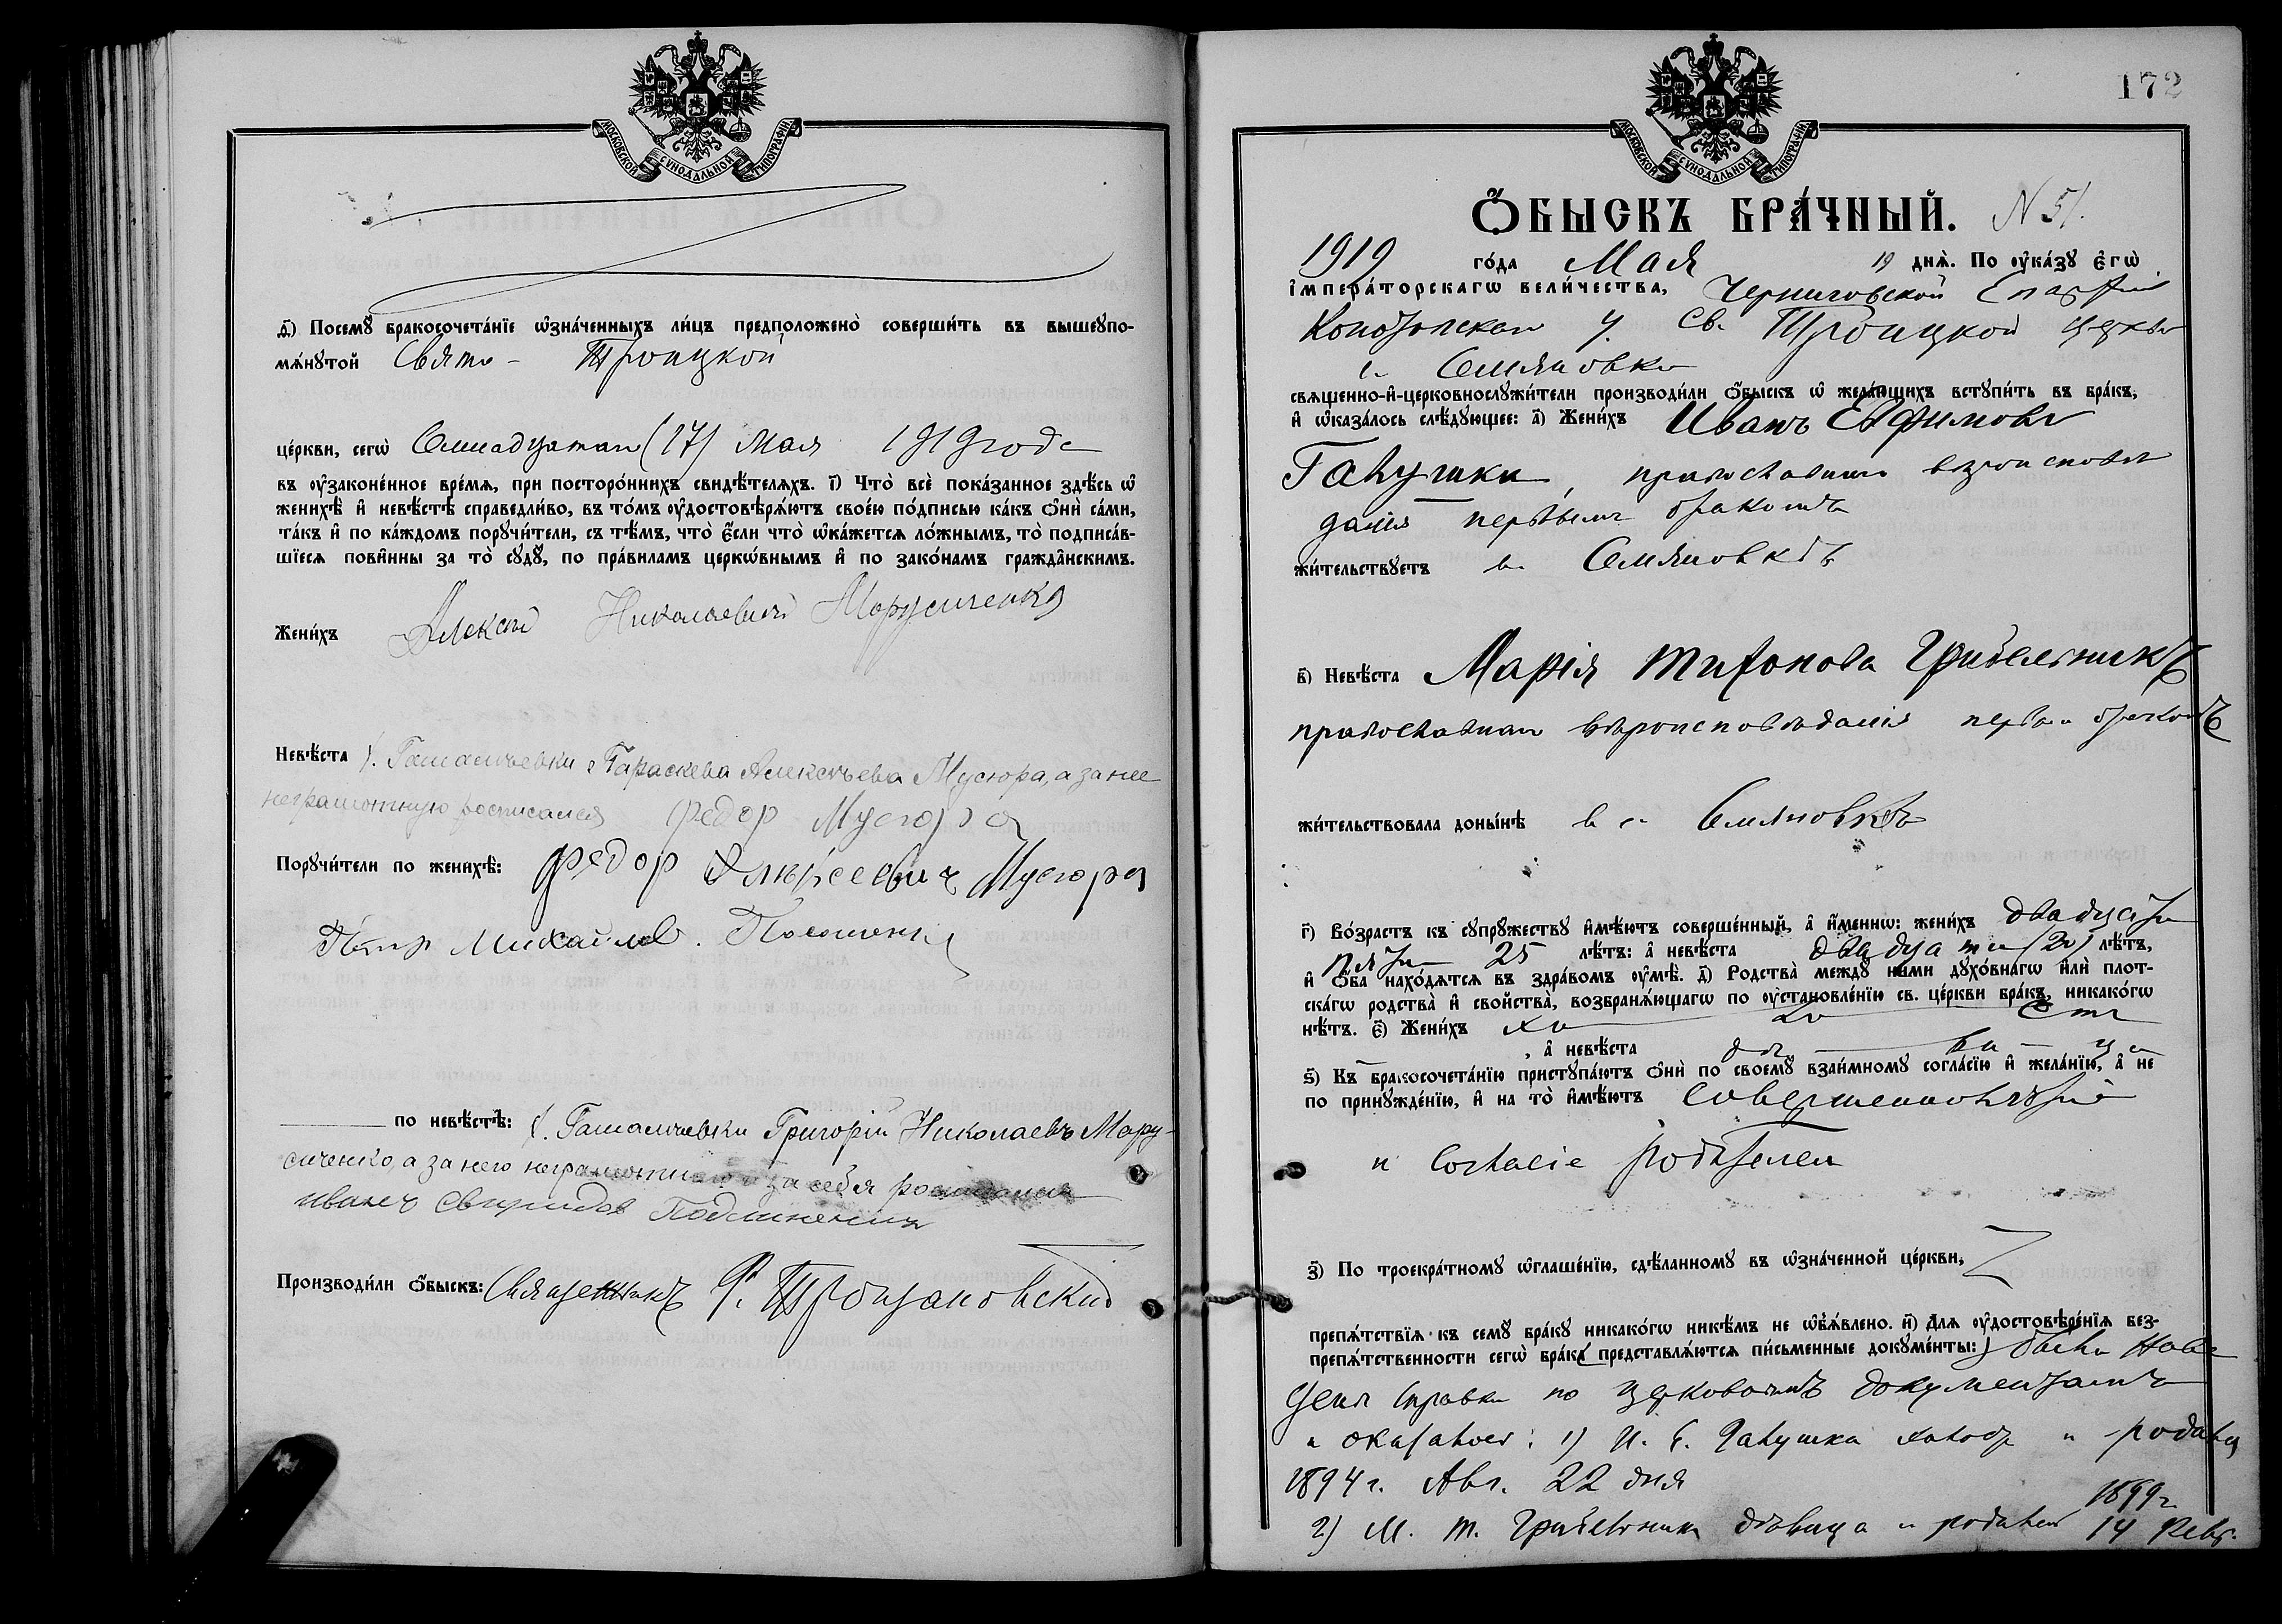 МОСКОВСКОЙ СѴНОДАЛЬНОЙ ТИПОГРАФІИ
д҃) Посемꙋ бракосочета́нїе ѡ҆зна́ченныхъ ли́цъ предположено̀ соверши́ть въ вышеꙋпо-
мѧ́нꙋтой Свято - Троицкой
це́ркви, сегѡ̀ Семнадцатаго (17) Мая 1919 года
въ ᲂу҆законе́нное вре́мѧ, при посторо́ннихъ свидѣ́телѧхъ. і҃) Что̀ всѐ пока́занное здѣ́сь ѡ҆
женихѣ̀ и҆ невѣ́стѣ справедли́во, въ то́мъ ᲂу҆достовѣрѧ́ютъ свое́ю по́дписью ка́къ ѻ҆нѝ са́ми,
та́къ и҆ по ка́ждомъ порꙋчи́тели, съ тѣ́мъ, что̀ є҆́сли что̀ ѡ҆ка́жетсѧ ло́жнымъ, то̀ подписа́в-
шїесѧ пови́нны за то̀ сꙋдꙋ̀, по пра́виламъ церкѡ́внымъ и҆ по зако́намъ гражда́нскимъ.
Жени́хъ Алексей Николаевичъ Марусиченко
Невѣ́ста Параскева Алексѣева Мусюра, а за нее
неграмотную росписался Федор Мусюра
Порꙋчи́тели по женихѣ̀: Федор Алексеевич Мусюра
Петр Михайлов.
по невѣ́стѣ: Григорій Николаевъ Мару-
сиченко, а за него неграмотнаго и за себя росписался
Иванъ Свиридов
Производи́ли ѻ҆́быскъ: Священникъ
МОСКОВСКОЙ СѴНОДАЛЬНОЙ ТИПОГРАФІИ
172
Ѻ҆́БЫСКЪ БРА́ЧНЫЙ. N 51.
1919 го́да Мая 19 днѧ̀. По ᲂу҆ка́зꙋ є҆гѡ̀
і҆мпера́торскагѡ вели́чества, Черниговской Епархіи
Конотопскаго у. Св. Троицкой церкви
с. Семяновки
свѧще́нно-и҆-церковнослꙋжи́тели производи́ли ѻ҆́быскъ ѡ҆ жела́ющихъ встꙋпи́ть въ бра́къ,
и҆ ѡ҆каза́лось слѣ́дꙋющее: а҃) Жени́хъ Иванъ Евфимовъ
Галушка, православнаго вѣроисповѣ
данія первымъ бракомъ
жи́тельствꙋетъ с. Семяновкѣ
в҃) Невѣ́ста Марія Тихонова Гребельникъ
православнаго вѣроисповѣданія первымъ бракомъ
жи́тельствовала доны́нѣ в с. Семяновкѣ
г҃) Во́зрастъ къ сꙋпрꙋ́жествꙋ и҆мѣ́ютъ соверше́нный, а҆ и҆́меннѡ: жени́хъ двадцати
пяти 25 лѣ́тъ: а҆ невѣ́ста двадцати (20) лѣ́тъ,
и҆ ѻ҆́ба нахо́дѧтсѧ въ здра́вомъ ᲂу҆мѣ̀. д҃) Родства̀ междꙋ̀ ни́ми дꙋхо́внагѡ и҆лѝ плот-
ска́гѡ родства̀ и҆ свойства̀, возбранѧ́ющагѡ по ᲂу҆становле́нїю св. це́ркви бра́къ, никако́гѡ
нѣ́тъ. є҃) Жени́хъ хо — ло — стъ
, а҆ невѣ́ста дѣ — ви — ца
ѕ҃) Къ бракосочета́нїю пристꙋпа́ютъ ѻ҆нѝ по своемꙋ̀ взаи́мномꙋ согла́сїю и҆ жела́нїю, а҆ не
по принꙋжде́нїю, и҆ на то̀ и҆мѣ́ютъ совершеннолѣтіе
и согласіе родителей
з҃) По троекра́тномꙋ ѡ҆глаше́нїю, сдѣ́ланномꙋ въ ѡ҆зна́ченной це́ркви,
препѧ́тствїѧ къ семꙋ̀ бра́кꙋ никако́гѡ никѣ́мъ не ѡ҆б̾ѧ́влено. и҃) Длѧ̀ ᲂу҆достовѣре́нїѧ без-
препѧ́тственности сегѡ̀ бра́ка представлѧ́ютсѧ пи́сьменные докꙋме́нты: были наве
дены справки по церковнымъ документамъ
и оказалось: 1) И. Е. Галушка холостъ и родился
1894 г. Авг. 22 дня
2) М. Т. Гребельникъ дѣвица и родилась 1899 г. 14 Февр.